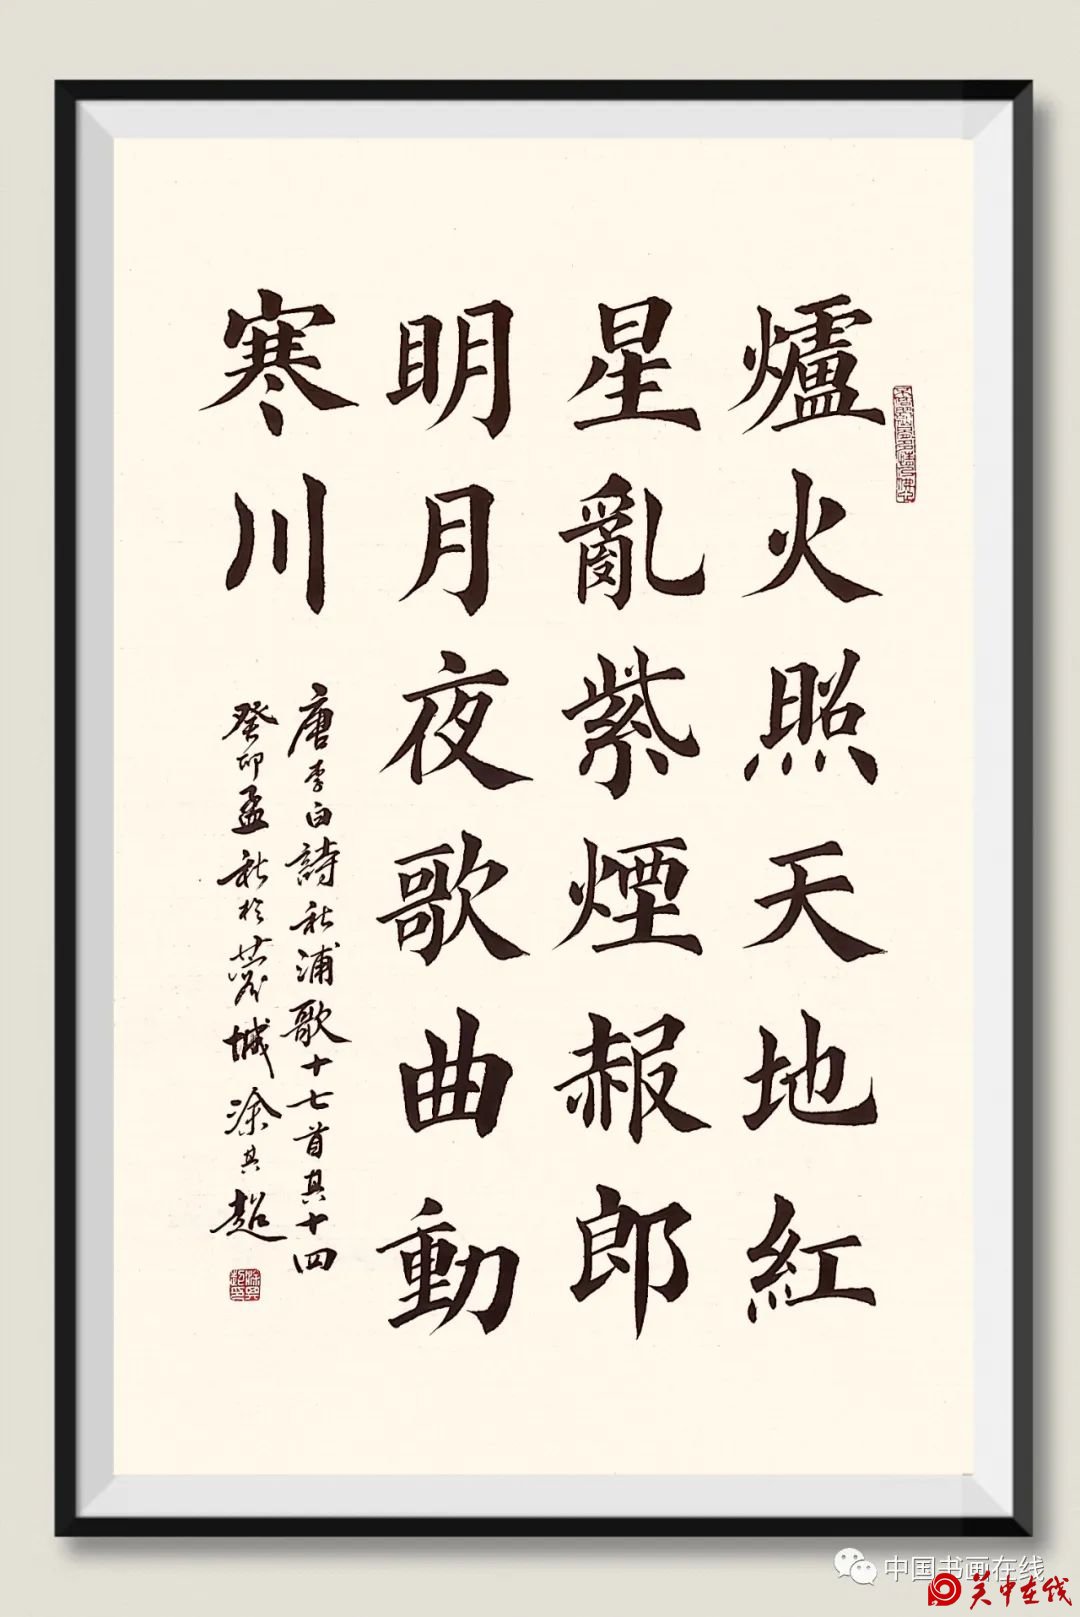 爐火照天地紅
星亂紫煙赧郎
明月夜歌曲動
寒川
唐李白詩秋浦歌十七首其十四
癸卯孟秋於城涂其超
中国书画在线
关中在线